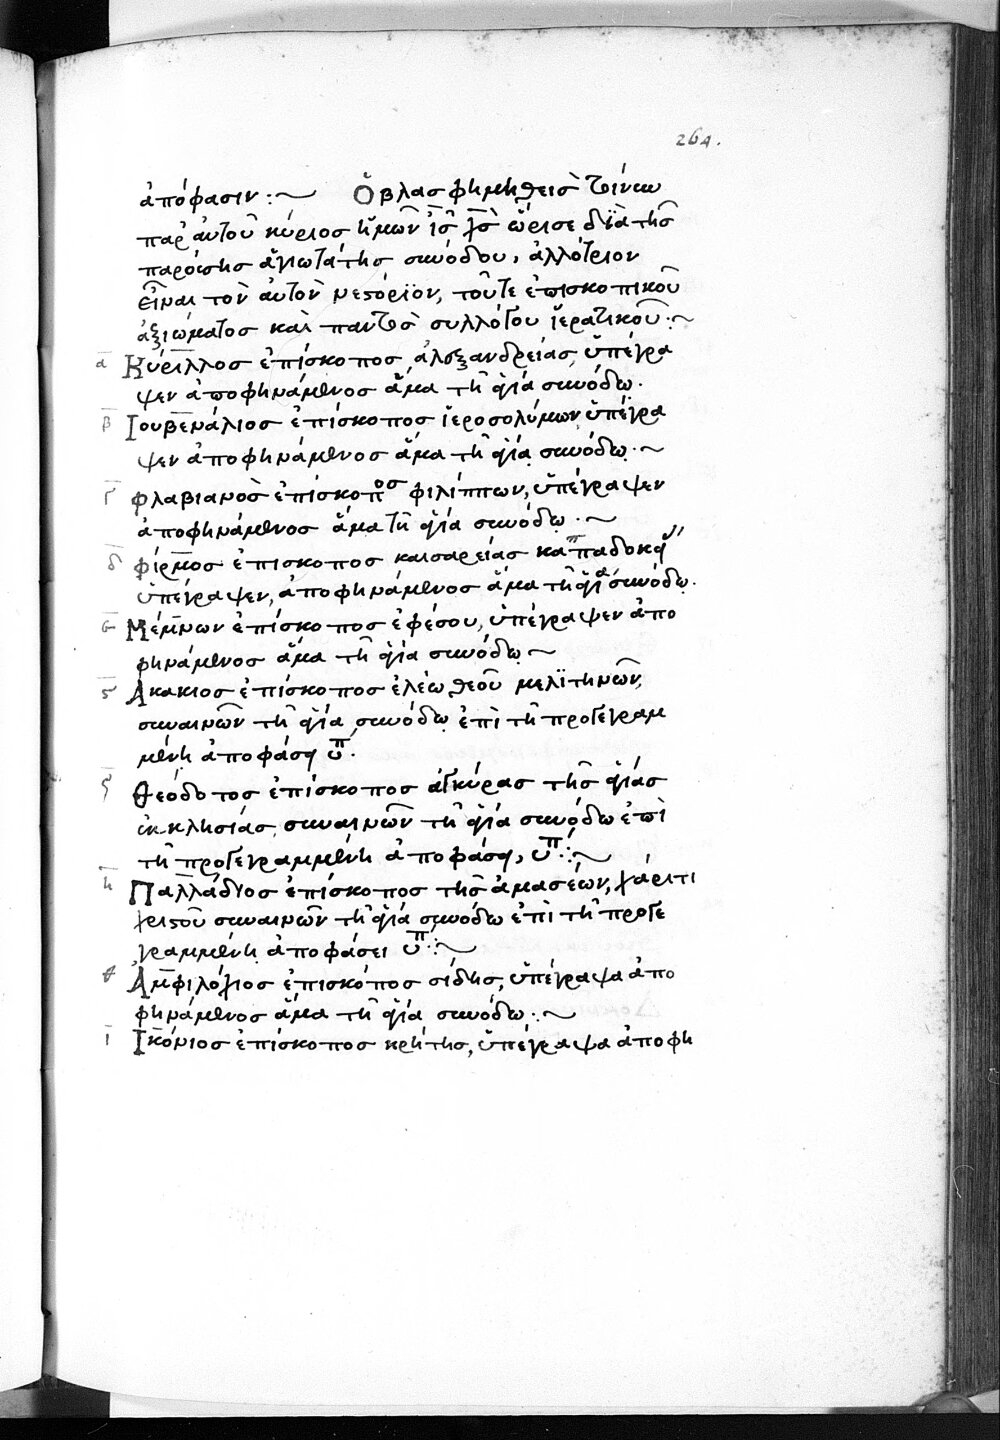 264.
ἀπόφασιν :~ Ὁ βλασφημηθεὶς τοίνυν
παρ' αὐτοῦ κύριος ἡμῶν ἰς χς ὥρισε διὰ τῆς
παρούσης ἁγιωτάτης συνόδου, ἀλλότριον
εἶναι τὸν αὐτὸν νεστόριον, τοῦτε ἐπισκοπικοῦ
ἀξιώματος καὶ παντὸς συλλόγου ἱερατικοῦ :~
α Κύριλλος ἐπίσκοπος ἀλεξανδρείας, ὑπέγρα
ψεν ἀποφηνάμενος ἅμα τῆ ἁγία συνόδω.
β Ἰουβενάλιος ἐπίσκοπος ἱεροσολύμων, ὑπέγρα
ψεν ἀποφηνάμενος ἅμα τῆ ἁγία συνόδω. ~
γ Φλαβιανὸς ἐπίσκοπος φιλίππων, ὑπέγραψεν
ἀποφηνάμενος ἅμα τῆ ἁγία συνόδω. ~
δ Φίρμος ἐπίσκοπος καισαρείας καππαδοκῶν
ὑπέγραψεν, ἀποφηνάμενος ἅμα τῆ ἁγία συνόδω.
ε Μέμνων ἐπίσκοπος ἐφέσου, ὑπέγραψεν ἀπο
φηνάμενος ἅμα τῆ ἁγία συνόδω ~
ς Ἀκάκιος ἐπίσκοπος ἐλέω θεοῦ μελϊτηνῶν,
συναινῶν τῆ ἁγία συνόδω ἐπὶ τῆ προγεγραμ
μένη ἀποφάσει ὑπ.
ζ Θεόδοτος ἐπίσκοπος ἀγκύρας τῆς ἁγίας
ἐκκλησίας, συναινῶν τῆ ἁγία συνόδω ἐπὶ
τῆ προγεγραμμένη ἀποφάσει, ὑπ :~
η Παλλάδιος ἐπίσκοπος τῆς ἀμασέων, χάριτι
χριστοῦ συναινῶν τῆ ἁγία συνόδω ἐπὶ τῆ προγε
γραμμένη ἀποφάσει ὑπ :~
θ Ἀμφιλόχιος ἐπίσκοπος σίδης, ὑπέγραψα ἀπο
φηνάμενος ἅμα τῆ ἁγία συνόδω :~
ι Ἰκόνιος ἐπίσκοπος κρήτης, ὑπέγραψα ἀποφη